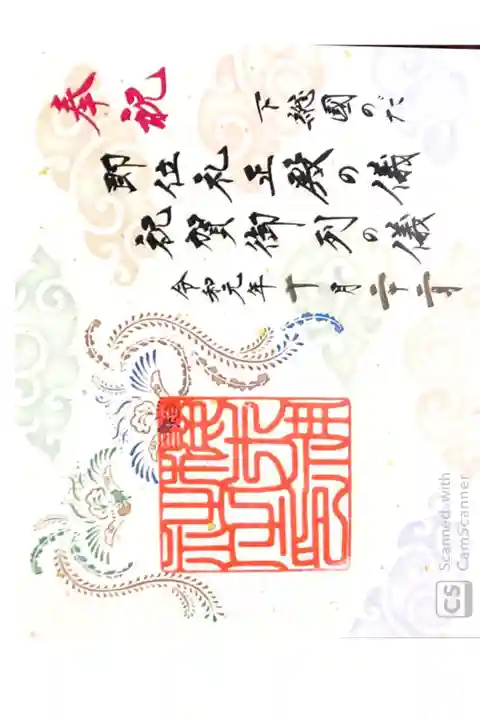 奉祝
下總國のだ
即位礼正殿の儀
祝賀御列の儀
令和元年十月二十二日
CS
Scanned with
CamScanner